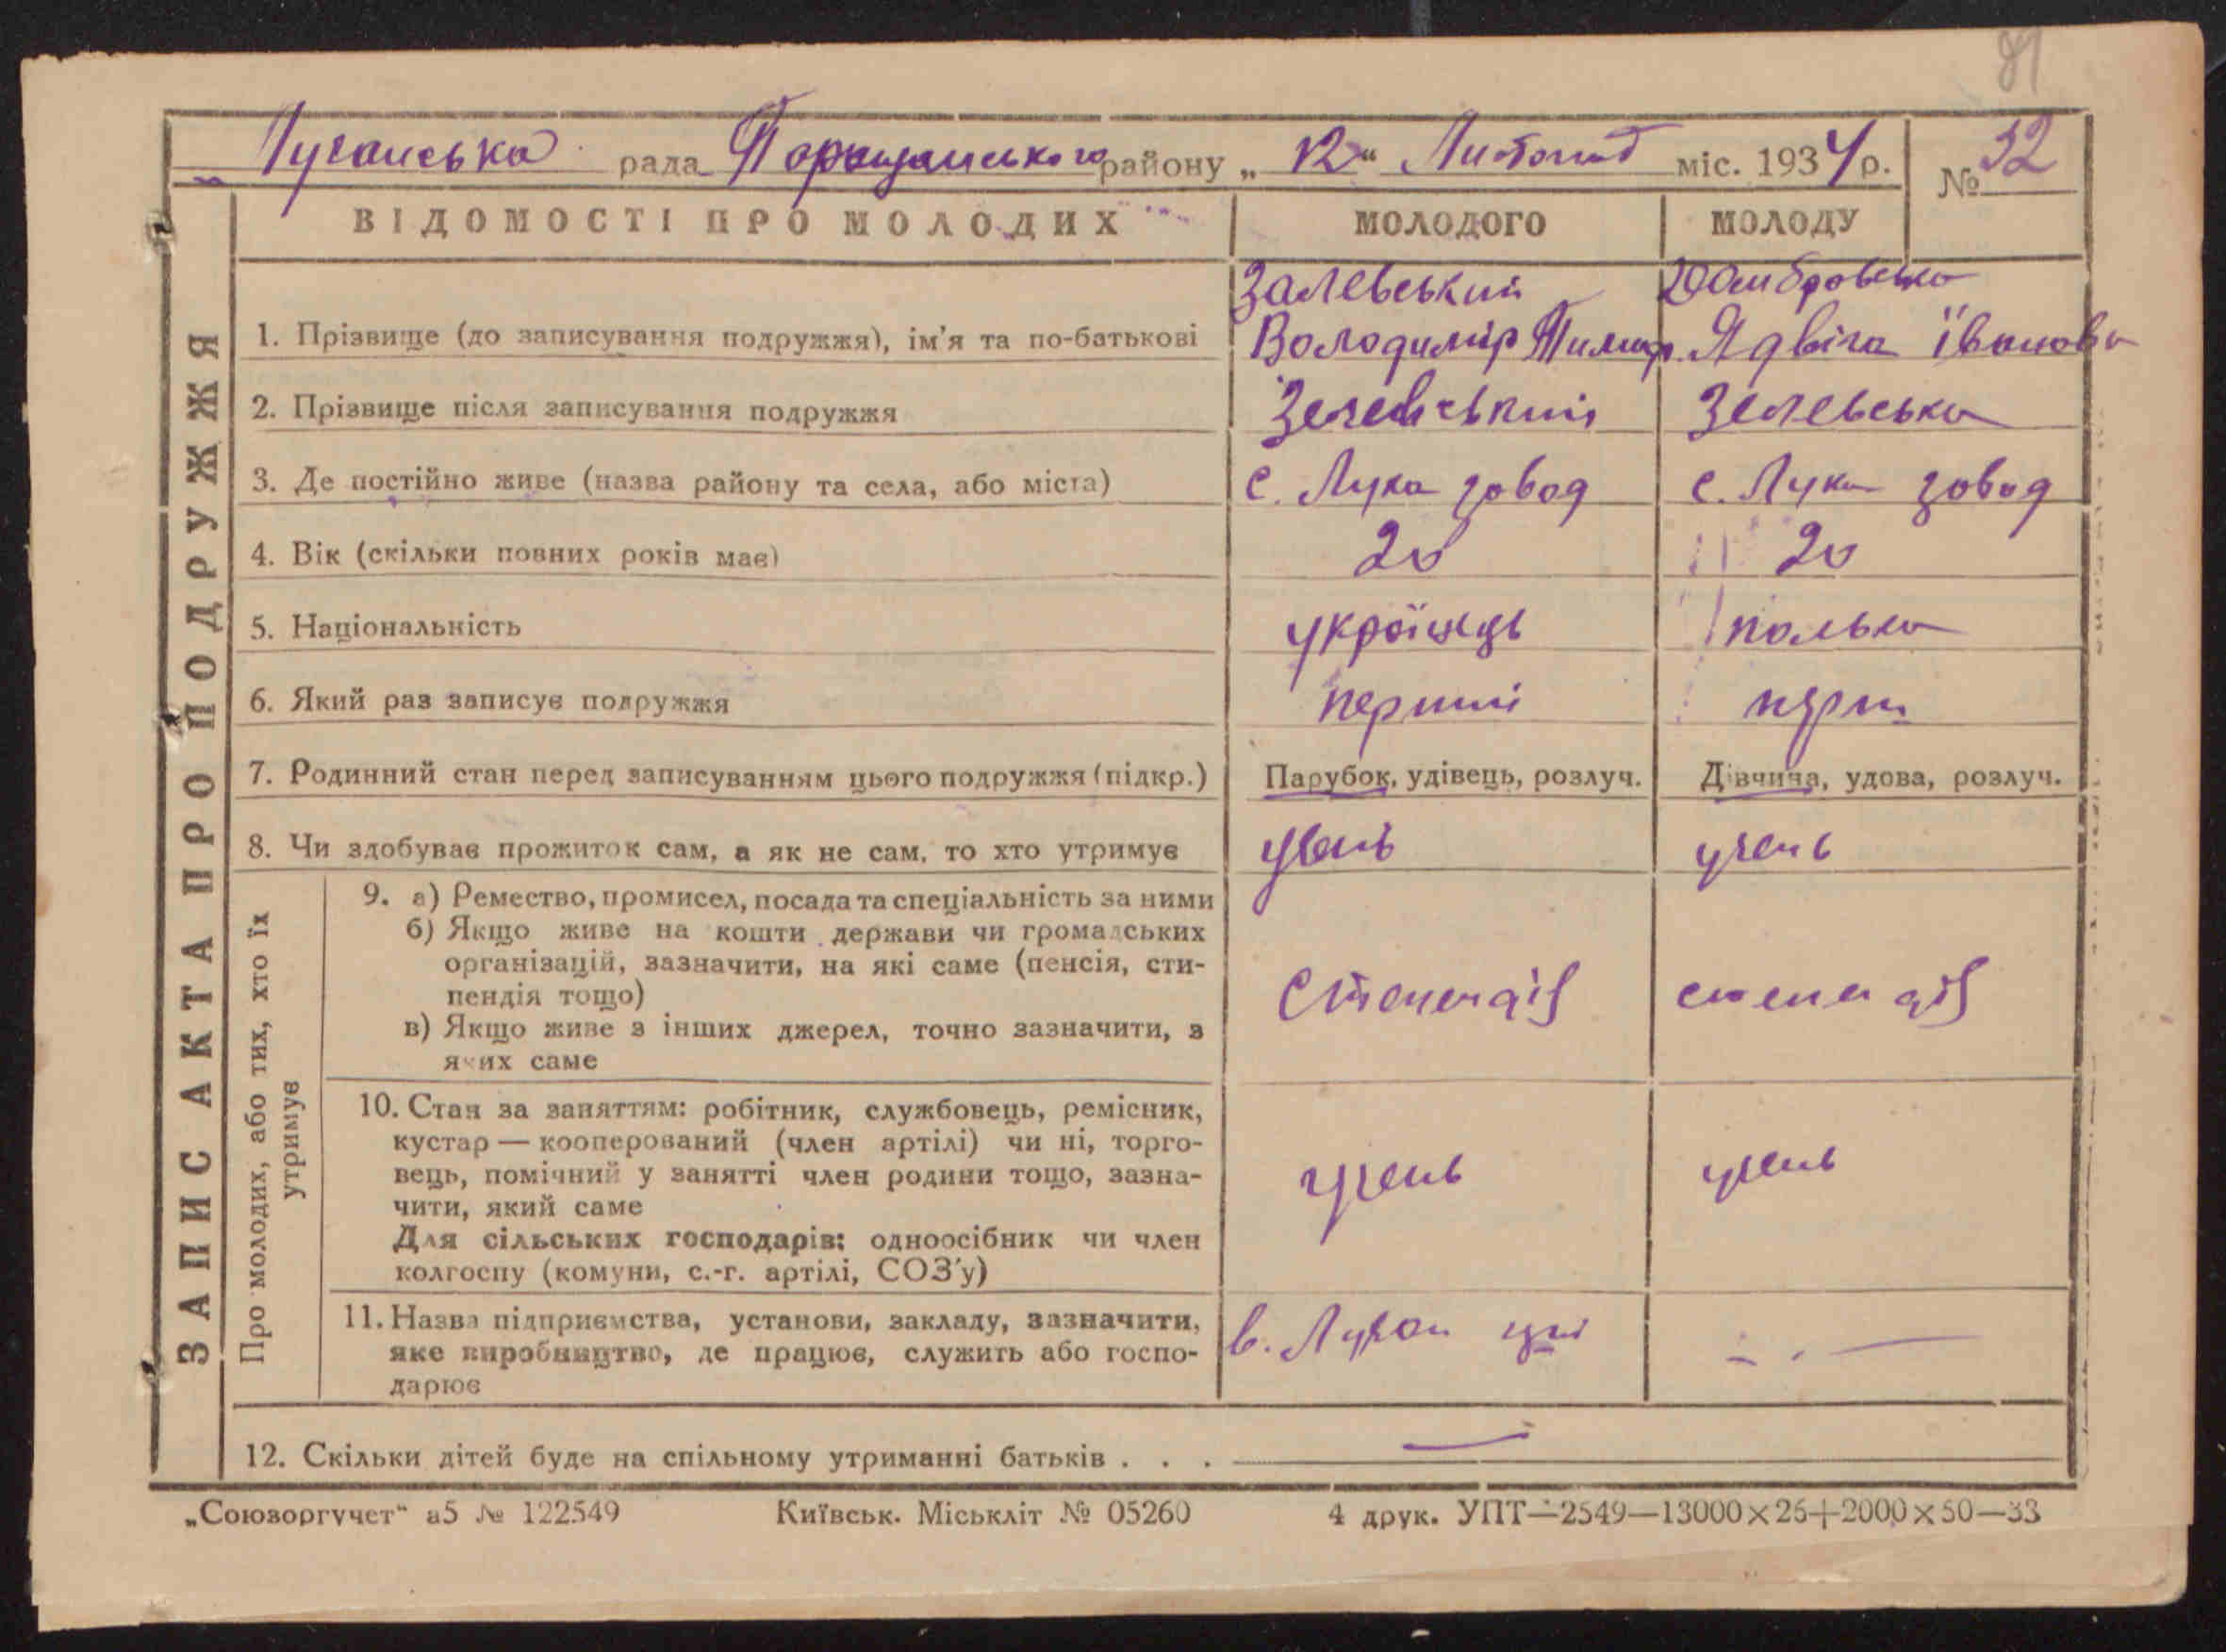 81
Лучанська рада Таращанського району „ 12 “ Листопад міс. 1934 р. № 32
ВІДОМОСТІ ПРО МОЛОДИХ МОЛОДОГО МОЛОДУ
ЗАПИС АКТА ПРО ПОДРУЖЖЯ
Залевський Домбровська
1. Прізвище (до записування подружжя), ім’я та по-батькові Володимір Тимоф. Ядвіга Івановн
2. Прізвище після записування подружжя Зелевський Зелевська
3. Де постійно живе (назва району та села, або міста) с. Лука завод с. Лука завод
4. Вік (скільки повних років має) 20 20
5. Національність україцець полька
6. Який раз записує подружжя перший перш
7. Родинний стан перед записуванням цього подружжя (підкр.) Парубок, удівець, розлуч. Дівчина, удова, розлуч.
8. Чи здобуває прожиток сам, а як не сам, то хто утримує учень учень
Про молодих, або тих, хто їх утримує
9. а) Ремество, промисел, посада та спеціальність за ними
б) Якщо живе на кошти держави чи громадських
організацій, зазначити, на які саме (пенсія, сти-
пендія тощо)
в) Якщо живе з інших джерел, точно зазначити, з
яких саме
степендія степендія
10. Стан за заняттям: робітник, службовець, ремісник,
кустар — кооперований (член артілі) чи ні, торго-
вець, помічний у занятті член родини тощо, зазна-
чити, який саме
Для сільських господарів: одноосібник чи член
колгоспу (комуни, с.-г. артілі, СОЗ’у)
учень учень
11. Назва підприємства, установи, закладу, зазначити,
яке виробництво, де працює, служить або госпо-
дарює
в.
12. Скільки дітей буде на спільному утриманні батьків . . . —
„Союзоргучет“ а5 № 122549 Київськ. Міськліт № 05260 4 друк. УПТ—2549—13000×25+2000×50—33